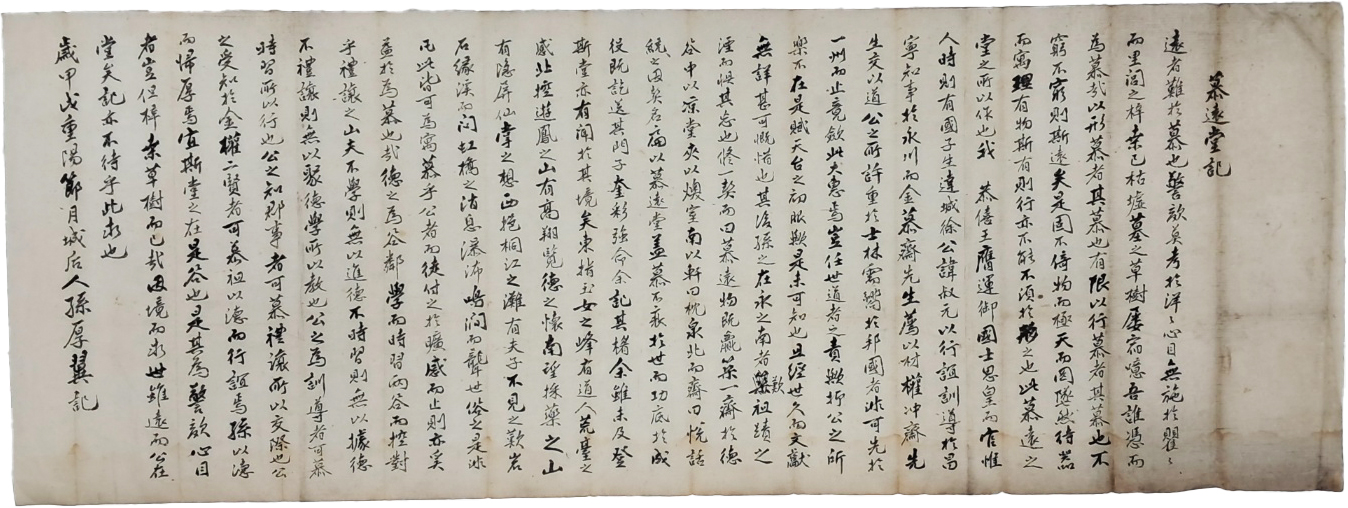 慕遠堂記
遠者難於慕也警欬莫考於洋々心目無施於瞿々
而里閭之梓桑已枯墟墓之草樹屢宿噫吾誰憑而
為慕哉以形慕者其慕也有限以行慕者其慕也不
窮不窮則斯遠矣是固不倚物而極天而罔墜然待器
而寓理有物斯有則行亦不能不須於形之也此慕遠之
堂之所以作也我 恭僖王膺運御國士思皇而官惟
人時則有國子生達城徐公諱叔元以行誼訓導於昌
寧知事於永川而金慕齋先生薦以材權冲齋先
生交以道公之所許重於士林需嚮於邦國者泝可先於
一州而止竟斂此大惠焉豈任世道者之責歟抑公之所
樂不在是賦天台之初服歟是未可知也且經世久而文獻
無詳甚可慨惜也其後孫之在永之南者歎築祖蹟之
湮而悞其忘也修一契而曰慕遠物既贏築一齋於德
谷中以凉堂夾以燠室南以軒曰枕泉北而齋曰悅話
統之因契名扁以慕遠堂盖慕不衰於世而功底於成
役既訖送其門子奎彩強命余記其楣余雖未及登
斯堂亦有聞於其境矣東指玉女之峰有道人荒臺之
感北控遊鳳之山有高翔覽德之懷南望採藥之山
有隱屏仙掌之想西挹桐江之灘有夫子不見之歎岩
石緣溪而問虹橋之消息瀑沛鳴澗而聾世俗之是非
凡此皆可為寓慕乎公者而徒付之於曠感而止則亦奚
益於為慕也哉德之為谷鄰學而時習兩谷而控對
乎禮讓之山夫不學則無以進德不時習則無以據德
不禮讓則無以聚德學所以教也公之為訓導者可慕
時習所以行也公之知郡事者可慕禮讓所以交際也公
之受知於金權二賢者可慕祖以德而行誼焉孫以德
而歸厚焉宜斯堂之在是谷也是其為警欬心目
者豈但梓桑草樹而已哉因境而求世雖遠而公在
堂矣記亦不待乎此求也
歲甲戌重陽節月城后人孫厚翼記